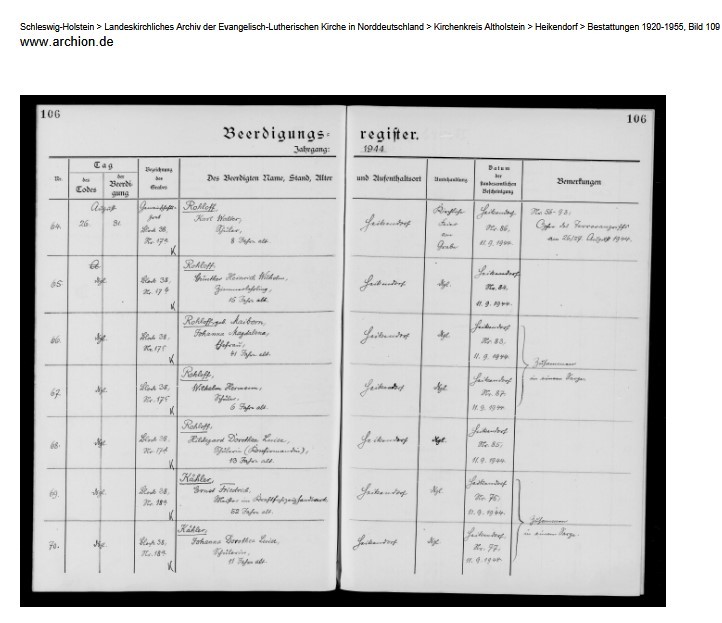 Schleswig-Holstein > Landeskirchliches Archiv der Evangelisch-Lutherischen Kirche in Norddeutschland > Kirchenkreis Altholstein > Heikendorf > Bestattungen 1920-1955, Bild 109
www.archion.de
106
106
Beerdigungs=
register.
Jahrgang:
1944.
Nr.
Tag
des Todes
der Beerdi-
gung
Bezeichnung
des
Grabes
Des Beerdigten Name, Stand, Alter
und Aufenthaltsort
Amtshandlung
Datum
der
standesamtlichen
Bescheinigung
Bemerkungen
August
64.
26.
31.
Block 38,
Nr. 174
K
Rohloff,
Karl Walter,
Schüler,
8 Jahre alt.
Heikendorf
Kirchliche
Feier
am
Grabe
Heikendorf
Nr. 86.
11. 9. 1944.
Nr. 56-92:
Opfer des Terrorangriffs
am 26/27. August 1944.
65.
dgl.
Block 38.
Nr. 174
K
Rohloff,
Günther Heinrich Wilhelm,
15 Jahre alt.
Heikendorf
dgl.
Heikendorf
Nr. 84.
11. 9. 1944.
66.
dgl.
Block 38.
Nr. 175
K
Rohloff, geb.
Johanna Magdalena,
Ehefrau,
41 Jahre alt.
Heikendorf
dgl.
Heikendorf
Nr. 83.
11. 9. 1944.
Zusammen
in einem Sarge.
67.
dgl.
Block 38.
Nr. 175.
K
Rohloff,
Wilhelm Hermann,
Schüler,
6 Jahre alt.
Heikendorf
dgl.
Heikendorf
Nr. 87.
11. 9. 1944.
68.
dgl.
Block 38.
Nr. 174
K
Rohloff,
Hildegard Dorothea Luise,
Schülerin (Konfirmandin),
13 Jahre alt.
Heikendorf
dgl.
Heikendorf
Nr. 85.
11. 9. 1944.
69.
dgl.
Block 38.
Nr. 184
K
Kähler,
Ernst Friedrich,
Meister
52 Jahre alt.
Heikendorf
dgl.
Heikendorf
Nr. 76.
11. 9. 1944.
Zusammen
in einem Sarge.
70.
dgl.
Block 38.
Nr. 184
K
Kähler,
Johanna Dorothea Luise
Schülerin,
11 Jahre alt.
Heikendorf
dgl.
Heikendorf
Nr. 77.
11. 9. 1944.